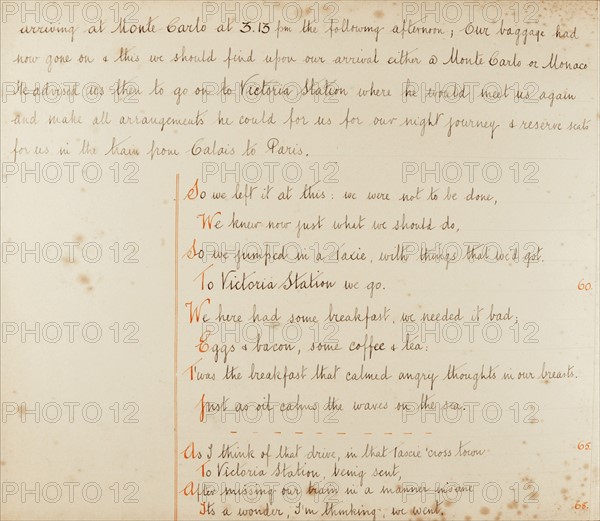 arriving at Monte Carlo at 3.13 pm the following afternoon; Our baggage had
now gone on & this we should find upon our arrival either @ Monte Carlo or Monaco
He advised us then to go on to Victoria Station where he would meet us again
and make all arrangements he could for us for our night journey & reserve seats
for us in the train from Calais to Paris.
So we left it at this: we were not to be done,
We knew now just what we should do,
So we jumped in a Taxie, with things that we'd got.
To Victoria Station we go. 60.
We here had some breakfast, we needed it bad;
Eggs & bacon, some coffee & tea:
T'was the breakfast that calmed angry thoughts in our breasts.
Just as oil calms the waves on the sea.
As I think of that drive, in that Taxie 'cross town 65.
To Victoria Station, being sent,
After missing our train in a manner insane
Its a wonder, I'm thinking, we went. 68.
PHOTO 12